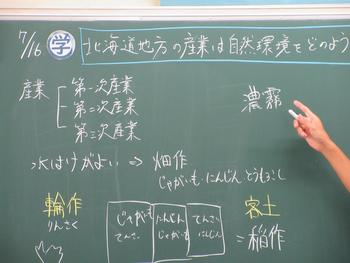 7/16 学 北海道地方の産業は自然環境をどのよう
産業
第一次産業
第二次産業
第三次産業
濃霧
水はけがよい ⇒ 畑作
じゃがいも にんじん とうもろこし
輪作
りんさく
じゃがいも
てんさい
にんじん
じゃがいも
てんさい
にんじん
客土
=稲作